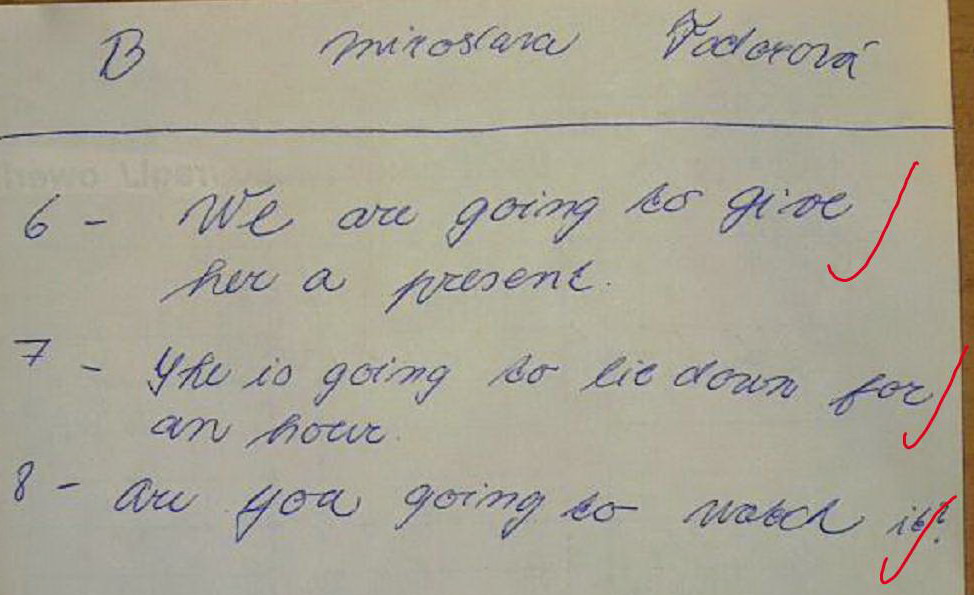 B Miroslava Fodorová
6 - We are going to give
her a present.
7 - She is going to lie down for
an hour.
8 - are you going to watch it?